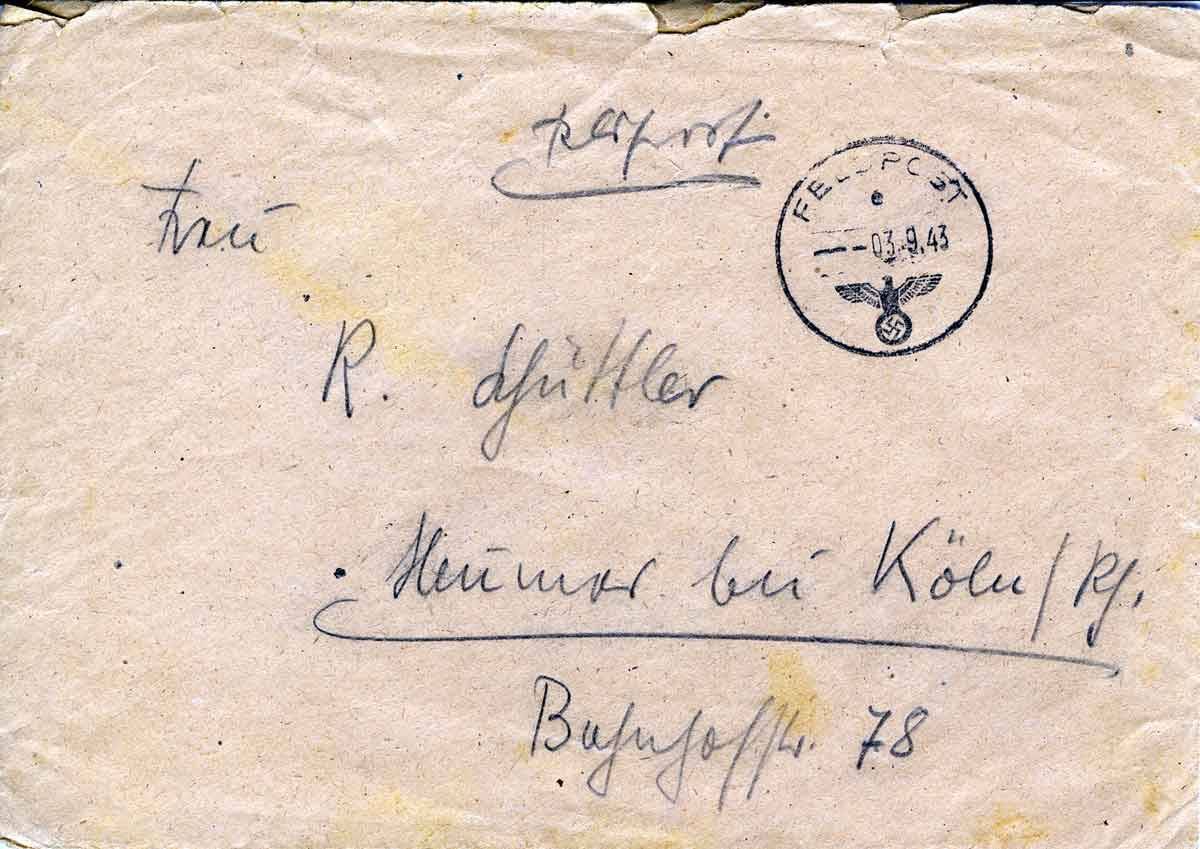 Feldpost
FELDPOST
03.9.43
Frau
R. Schüttler
Heumar bei Köln/Rh.
Bahnhofstr. 78